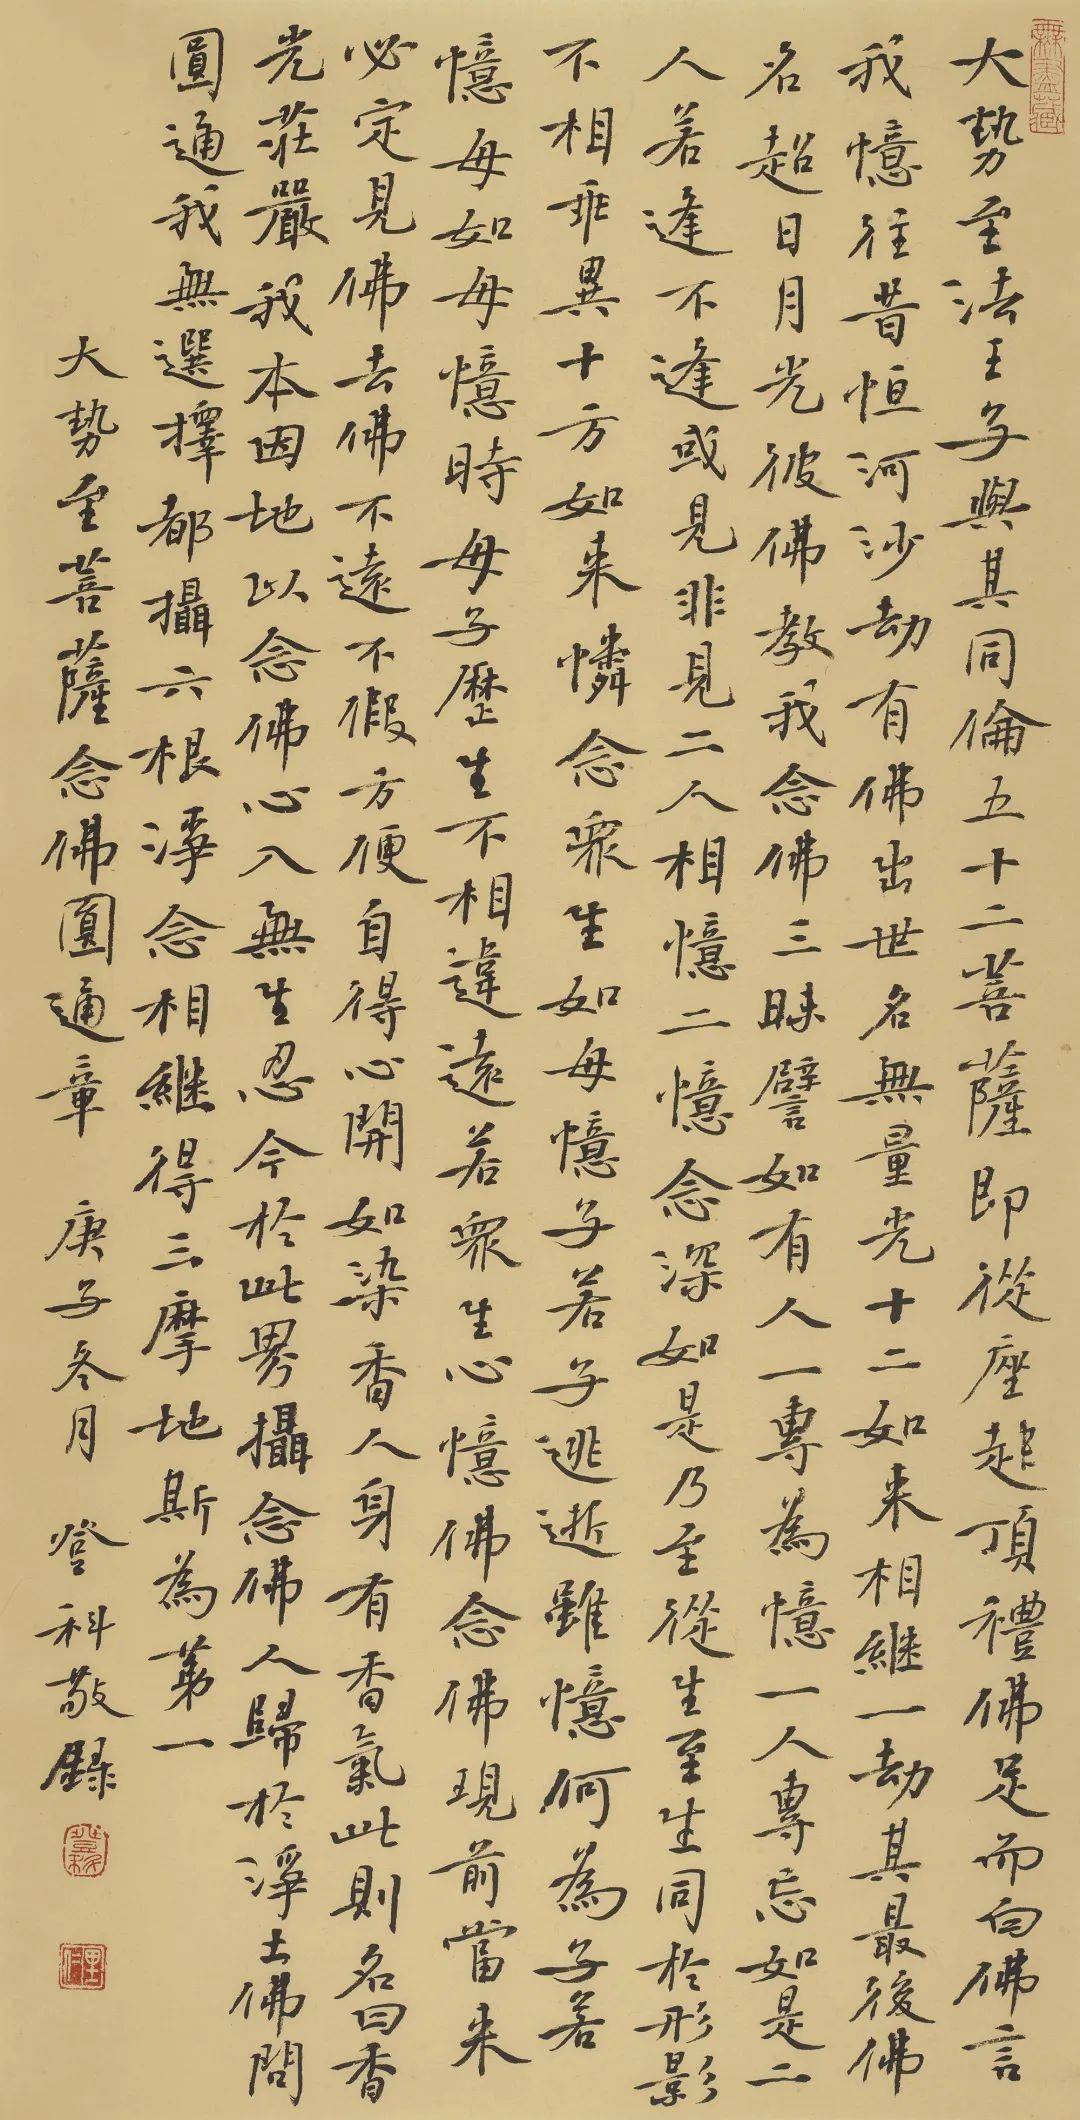 無盡藏
大勢至法王子與其同倫五十二菩薩即從座起頂禮佛足而白佛言
我憶往昔恒河沙劫有佛出世名無量光十二如来相繼一劫其最後佛
名超日月光彼佛教我念佛三昧譬如有人一專為憶一人專忘如是二
人若逢不逢或見非見二人相憶二憶念深如是乃至從生至生同於形影
不相乖異十方如来憐念眾生如母憶子若子逃逝雖憶何為子若
憶母如母憶時母子歷生不相違遠若眾生心憶佛念佛現前當来
必定見佛去佛不遠不假方便自得心開如染香人身有香氣此則名曰香
光莊嚴我本因地以念佛心入無生忍今於此界攝念佛人歸於淨土佛問
圓通我無選擇都攝六根淨念相繼得三摩地斯為第一
大勢至菩薩念佛圓通章 庚子冬月 登科敬錄
登科